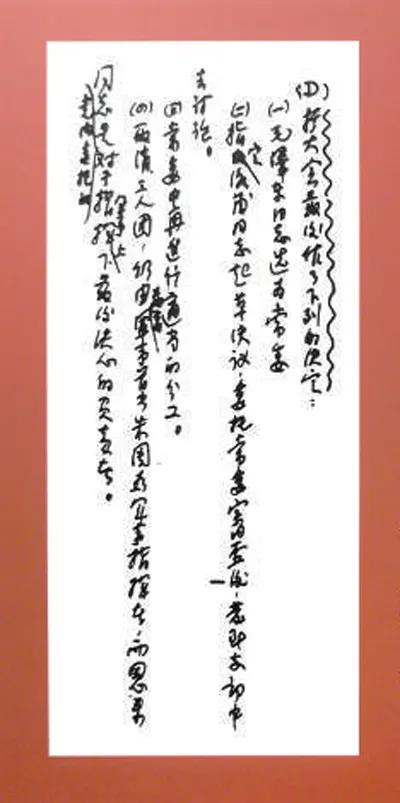 (D)扩大会最后作了下列的决定:
(一)毛澤东同志选为常委
(二)指定洛甫同志起草决议,委托常委审查后,发到支部中
去讨论。
(三)常委中再进行适当的分工。
(四)取消三人团,仍由最高军事首长朱周为军事指挥者,而恩来
同志是党内委托的对于指挥军事上下最后决心的负责者。